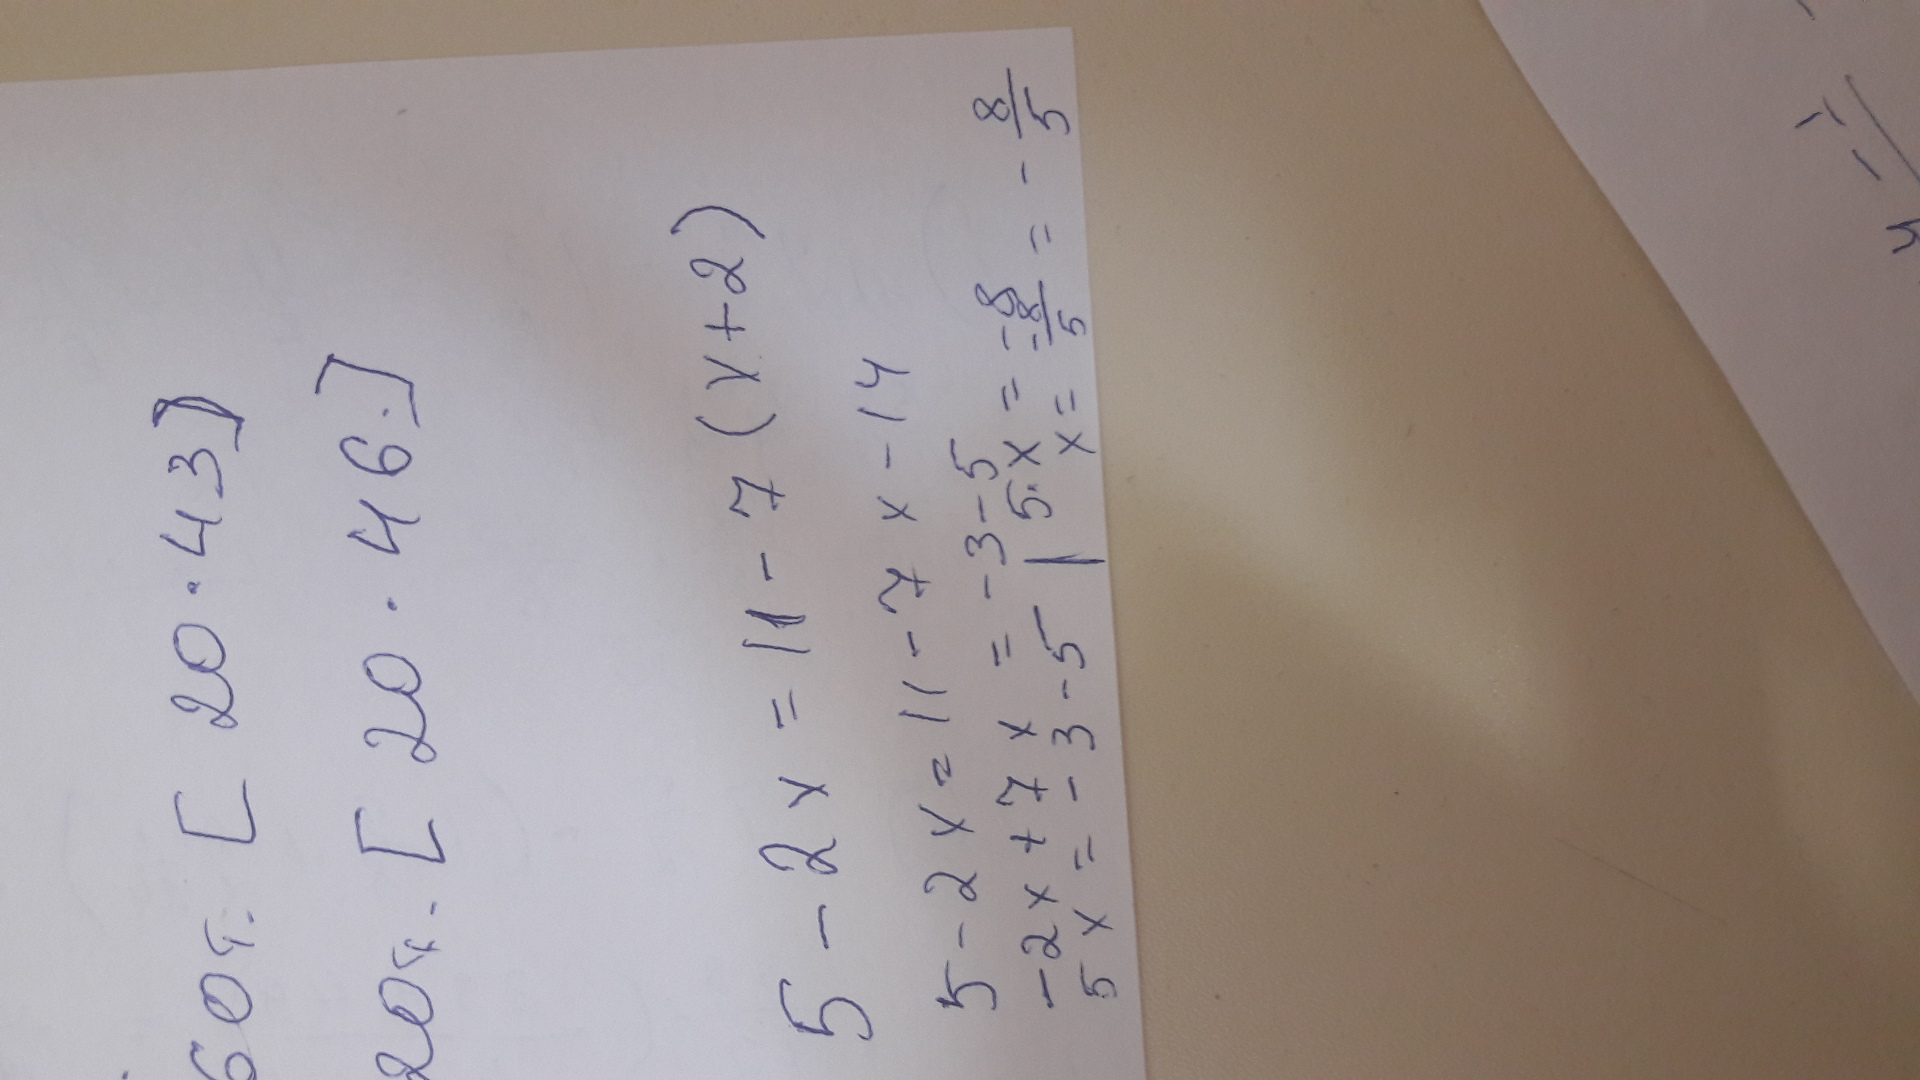 60т. [20.43]
20т. [20.46.]
5 - 2x = 11 - 7 (x+2)
5 - 2x = 11 - 7x - 14
-2x + 7x = -3 - 5
5x = -3 - 5 | 5·x = -8
x = -8/5 = - 8/5